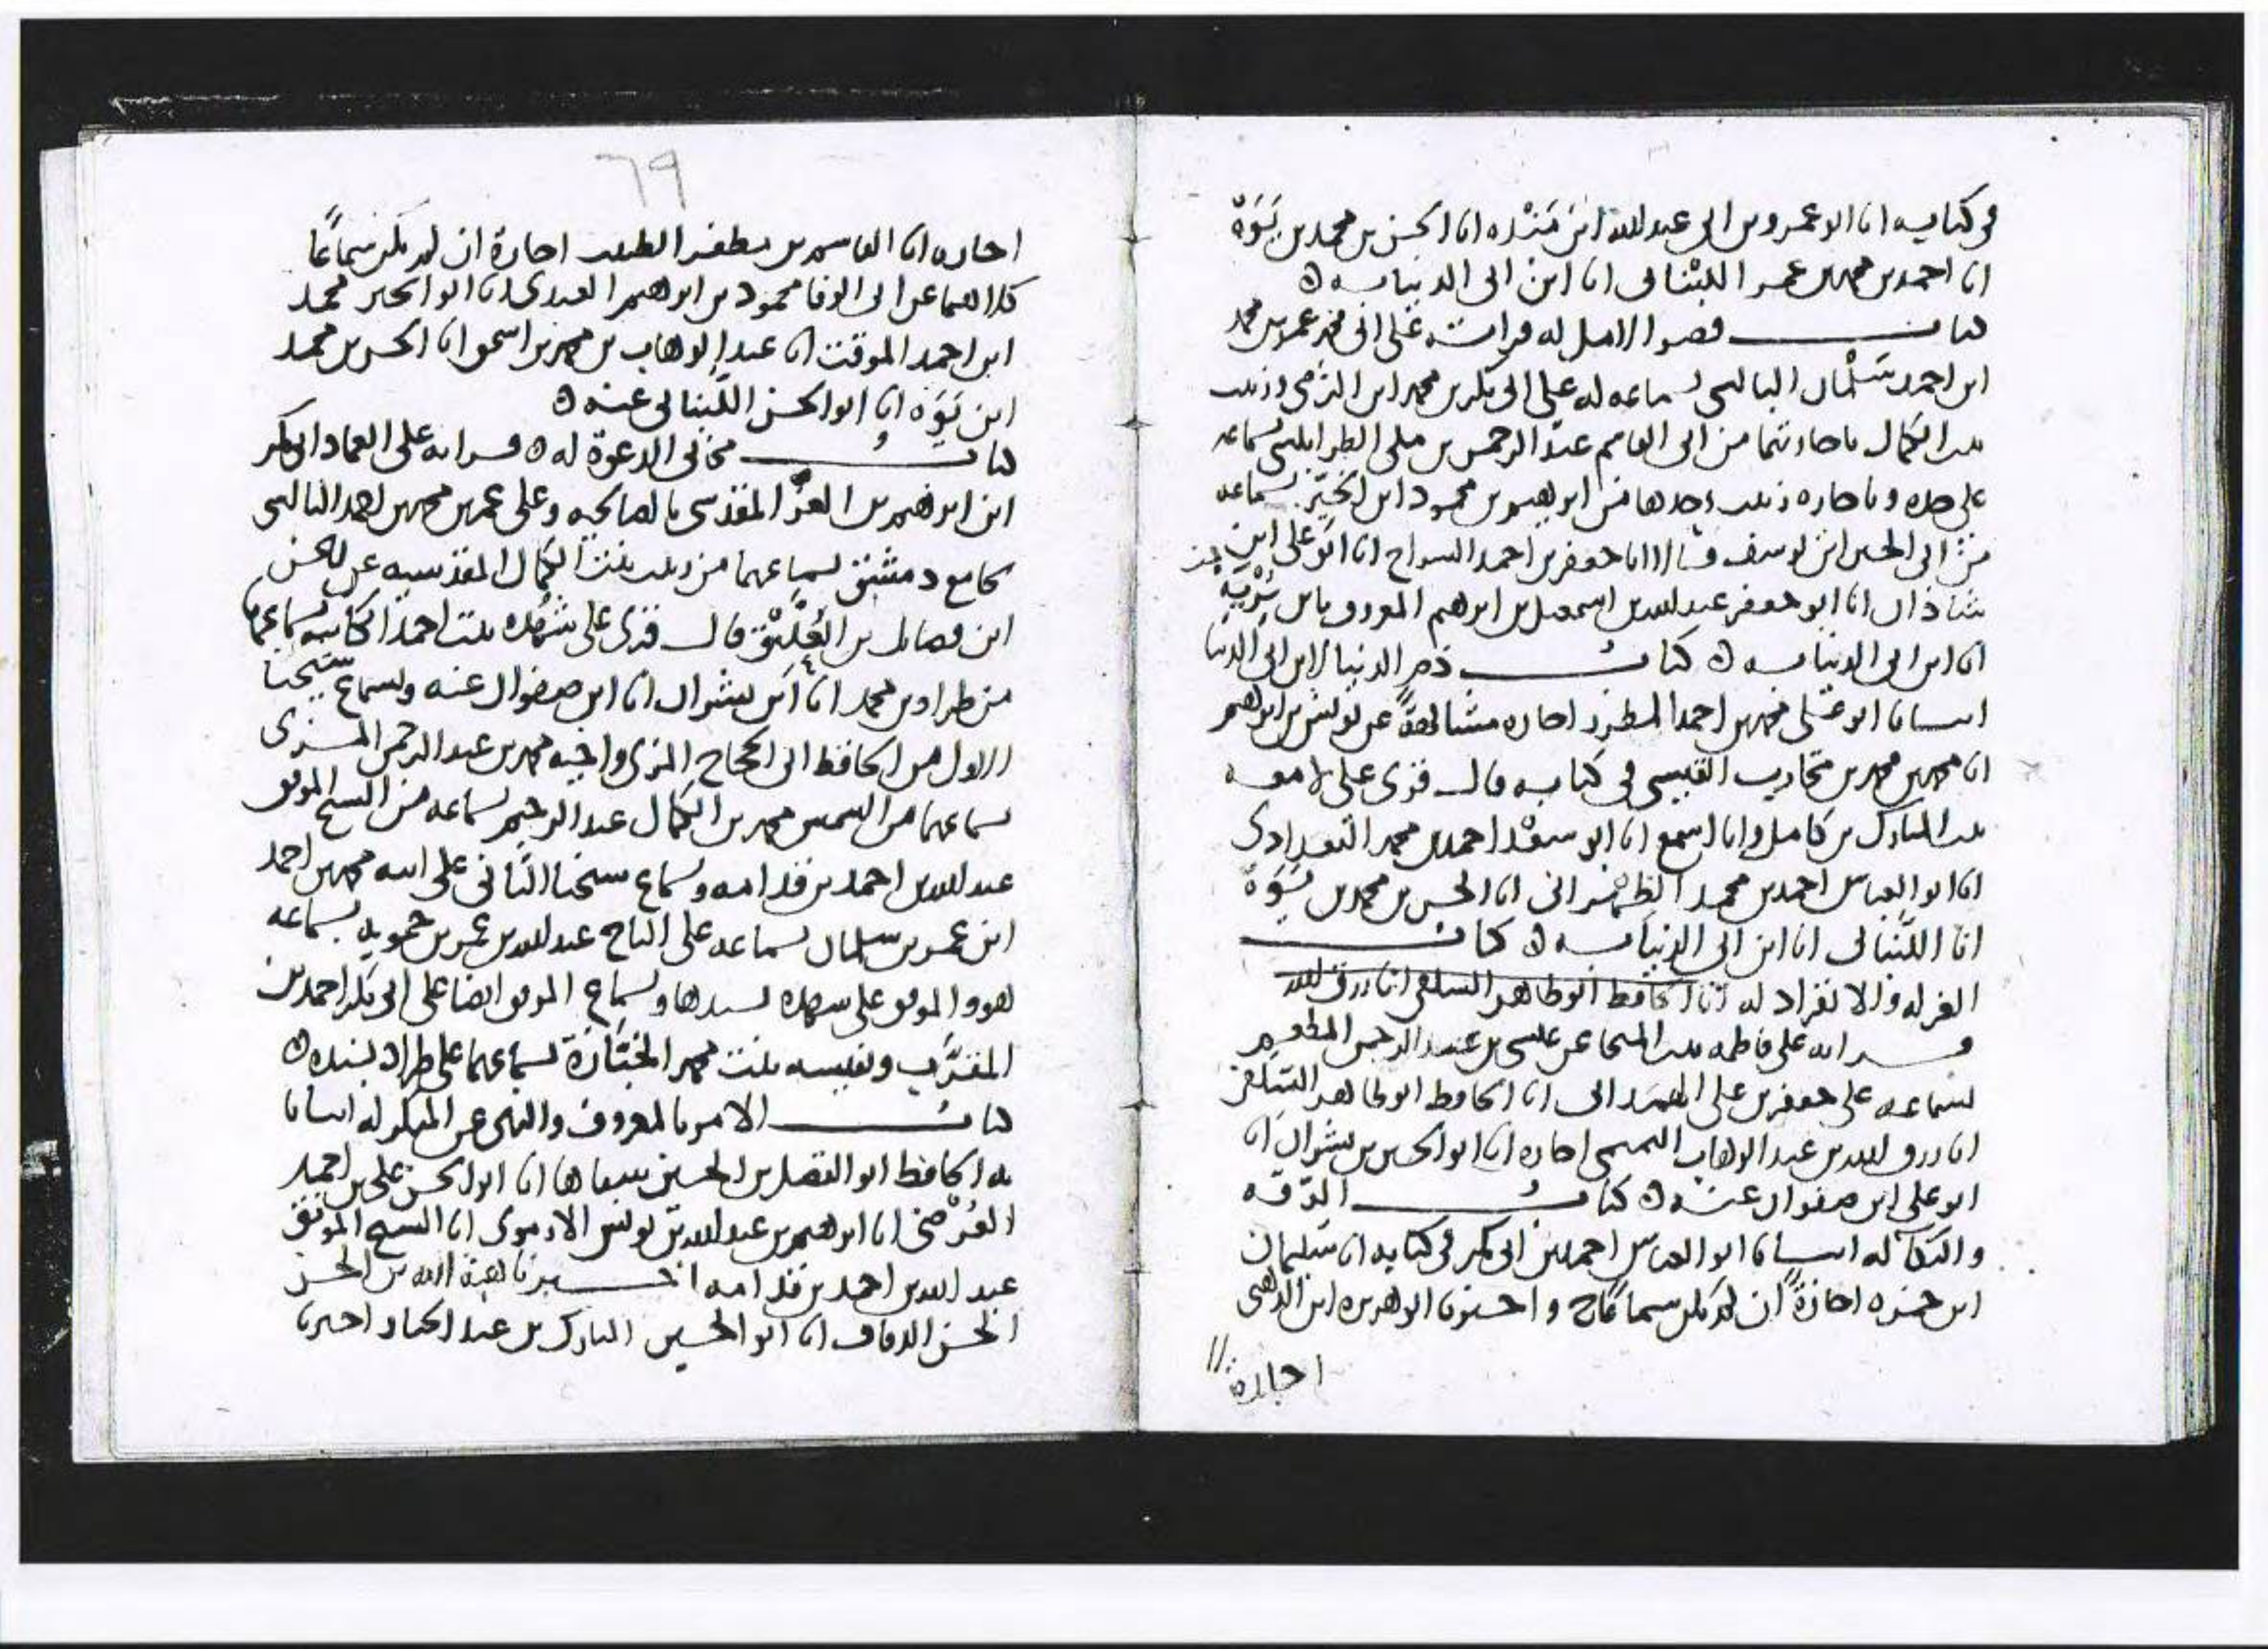 في كتابه انا ابو عمرو بن ابي عبد الله ابن مَنْده انا الحسن بن محمد بن يَوَهْ
انا احمد بن محمد بن عمر اللبناني انا ابن ابي الدنيا به ه
كتاب قصر الامل له قرات على ابي حفص عمر بن محمد
ابن احمد بن سلمان البالسي بسماعه له على ابي بكر بن محمد ابن الرضي وزينب
بنت الكمال باجازتهما من ابي القاسم عبد الرحمن بن مكي الطرابلسي بسماعه
على جده وباجازه زينب وحدها من ابرهيم بن محمود ابن الخَيِّر بسماعه
من ابي الحسين ابن يوسف قالا انا جعفر بن احمد السراج انا ابو علي ابن
شاذان انا ابو جعفر عبد الله بن اسمعيل بن ابرهيم المعروف بابن بُرَيْه
انا ابن ابي الدنيا به ه كتاب ذم الدنيا لابن ابي الدنيا
انبانا ابو علي محمد بن احمد المطرز اجازه مشافهةً عن يونس بن ابرهيم
انا محمد بن محمد بن محارب القيسي في كتابه قال قرئ على لامعه
بنت المبارك بن كامل وانا اسمع انا ابو سعد احمد بن محمد البغدادي
انا ابو العباس احمد بن محمد الطهراني انا الحسن بن محمد بن يَوَهْ
انا اللبناني انا ابن ابي الدنيا به ه كتاب
العزله والانفراد له انا الحافظ ابو طاهر السلفي انا رزق الله
قرانه على فاطمه بنت المنجا عن عيسى بن عبد الرحمن المطعم
بسماعه على جعفر بن علي الهمداني انا الحافظ ابو طاهر السلفي
انا رزق الله بن عبد الوهاب التميمي اجازه انا ابو الحسين بن بشران انا
ابو علي ابن صفوان عنه ه كتاب الرقه
والبكآ له انبانا ابو العباس احمد بن ابي بكر في كتابه انا سليمان
ابن حمزه اجازةً ان لم يكن سماعًا ح واخبرنا ابو هريره ابن الذهبي
اجازة
٦٩
اجازه انا القاسم بن مظفر الطبيب اجازة ان لم يكن سماعًا
كلاهما عن ابي الوفا محمود بن ابرهيم العبدي انا ابو الخير محمد
ابن احمد الموقت انا عبد الوهاب بن محمد بن اسحق انا الحسن بن محمد
ابن يَوَه انا ابو الحسن اللبناني عنه ه
كتاب مجابي الدعوة له ه قرانه على العماد ابي بكر
ابن ابرهيم بن العز المقدسي بالصالحيه وعلى عمر بن محمد بن احمد البالسي
بجامع دمشق بسماعهما من زينب بنت الكمال المقدسيه عن الحسن
ابن فضايل بن العُلَّيْق قال قرئ على شهده بنت احمد الكاتبه بسماعها
من طراد بن محمد انا ابن بشران انا ابن صفوان عنه وبسماع شيخنا
الاول من الحافظ ابي الحجاج المزي واخيه محمد بن عبد الرحمن المزي
بسماعهما من الشمس محمد بن الكمال عبد الرحيم بسماعه من الشيخ الموفق
عبد الله بن احمد بن قدامه وبسماع شيخنا الثاني على ابيه محمد بن احمد
ابن عمر بن سلمان بسماعه على التاج عبد الله بن عمر بن حمويه بسماعه
هو والموفق على شهده بسندها وبسماع الموفق ايضا على ابي بكر احمد بن
المقرَّب ونفيسه بنت محمد البزازة بسماعهما على طراد بسنده ه
كتاب الامر بالمعروف والنهي عن المنكر له انبانا
به الحافظ ابو الفضل بن الحسين شفاها انا ابو الحسن علي بن احمد
العُرْضي انا ابرهيم بن عبد الله بن يونس الارموي انا الشيخ الموفق
عبد الله بن احمد بن قدامه اخبرنا هبة الله بن الحسن
الحسن الدقاق انا ابو الحسين المبارك بن عبد الجبار اخبرنا